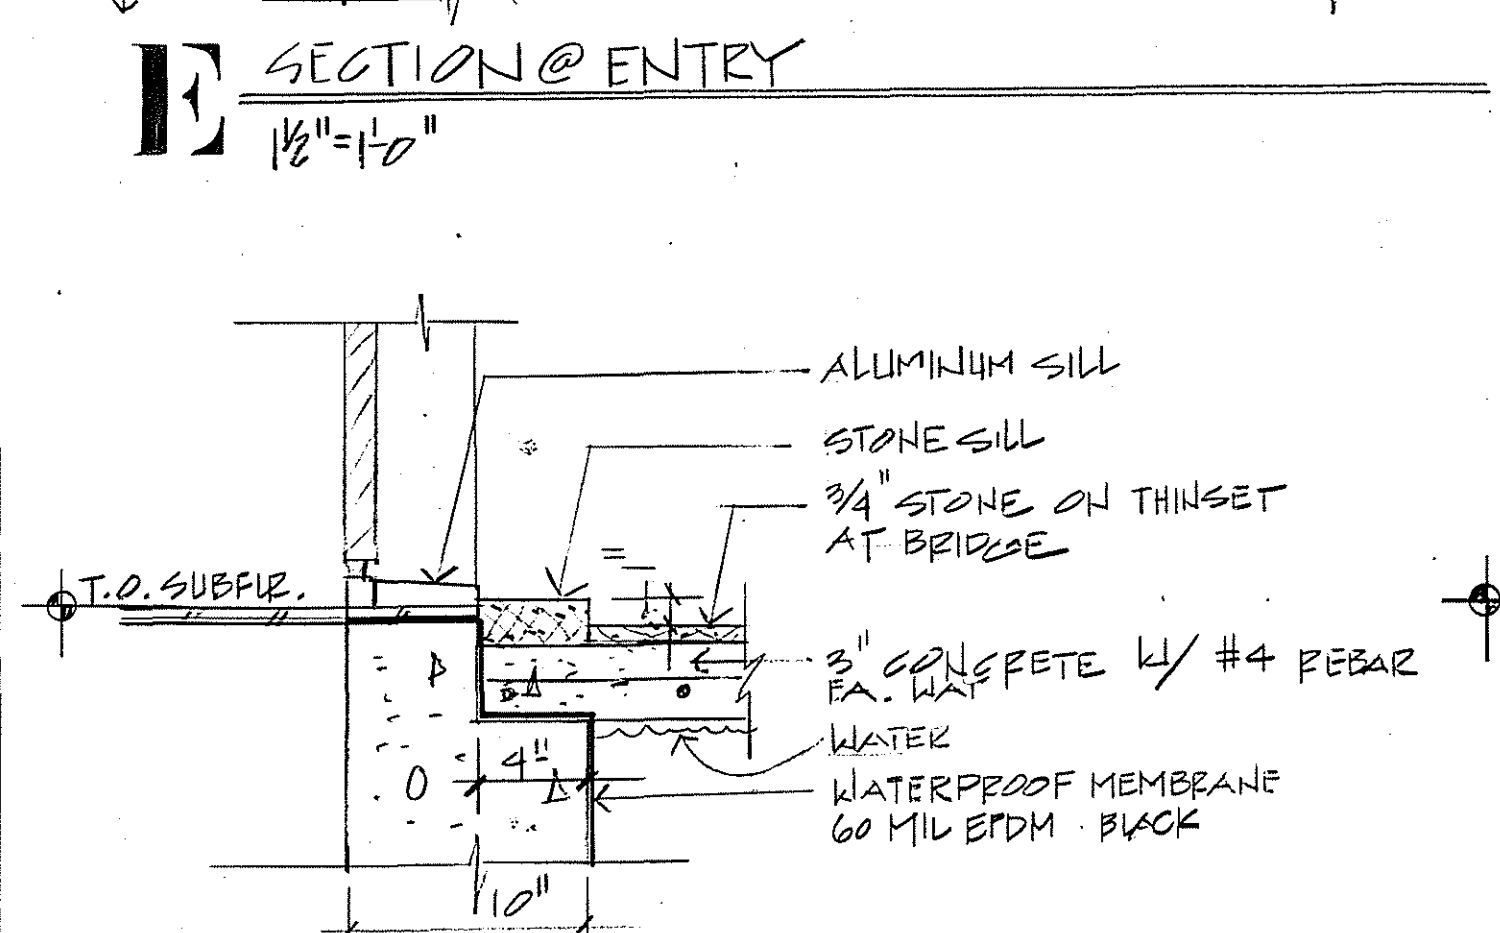 E SECTION @ ENTRY
1½"=1'-0"
ALUMINUM SILL
STONE SILL
3/4" STONE ON THINSET
AT BRIDGE
T.O. SUBFLR.
3" CONCRETE W/ #4 REBAR
EA. WAY
WATER
4"
WATERPROOF MEMBRANE
60 MIL EPDM . BLACK
10"